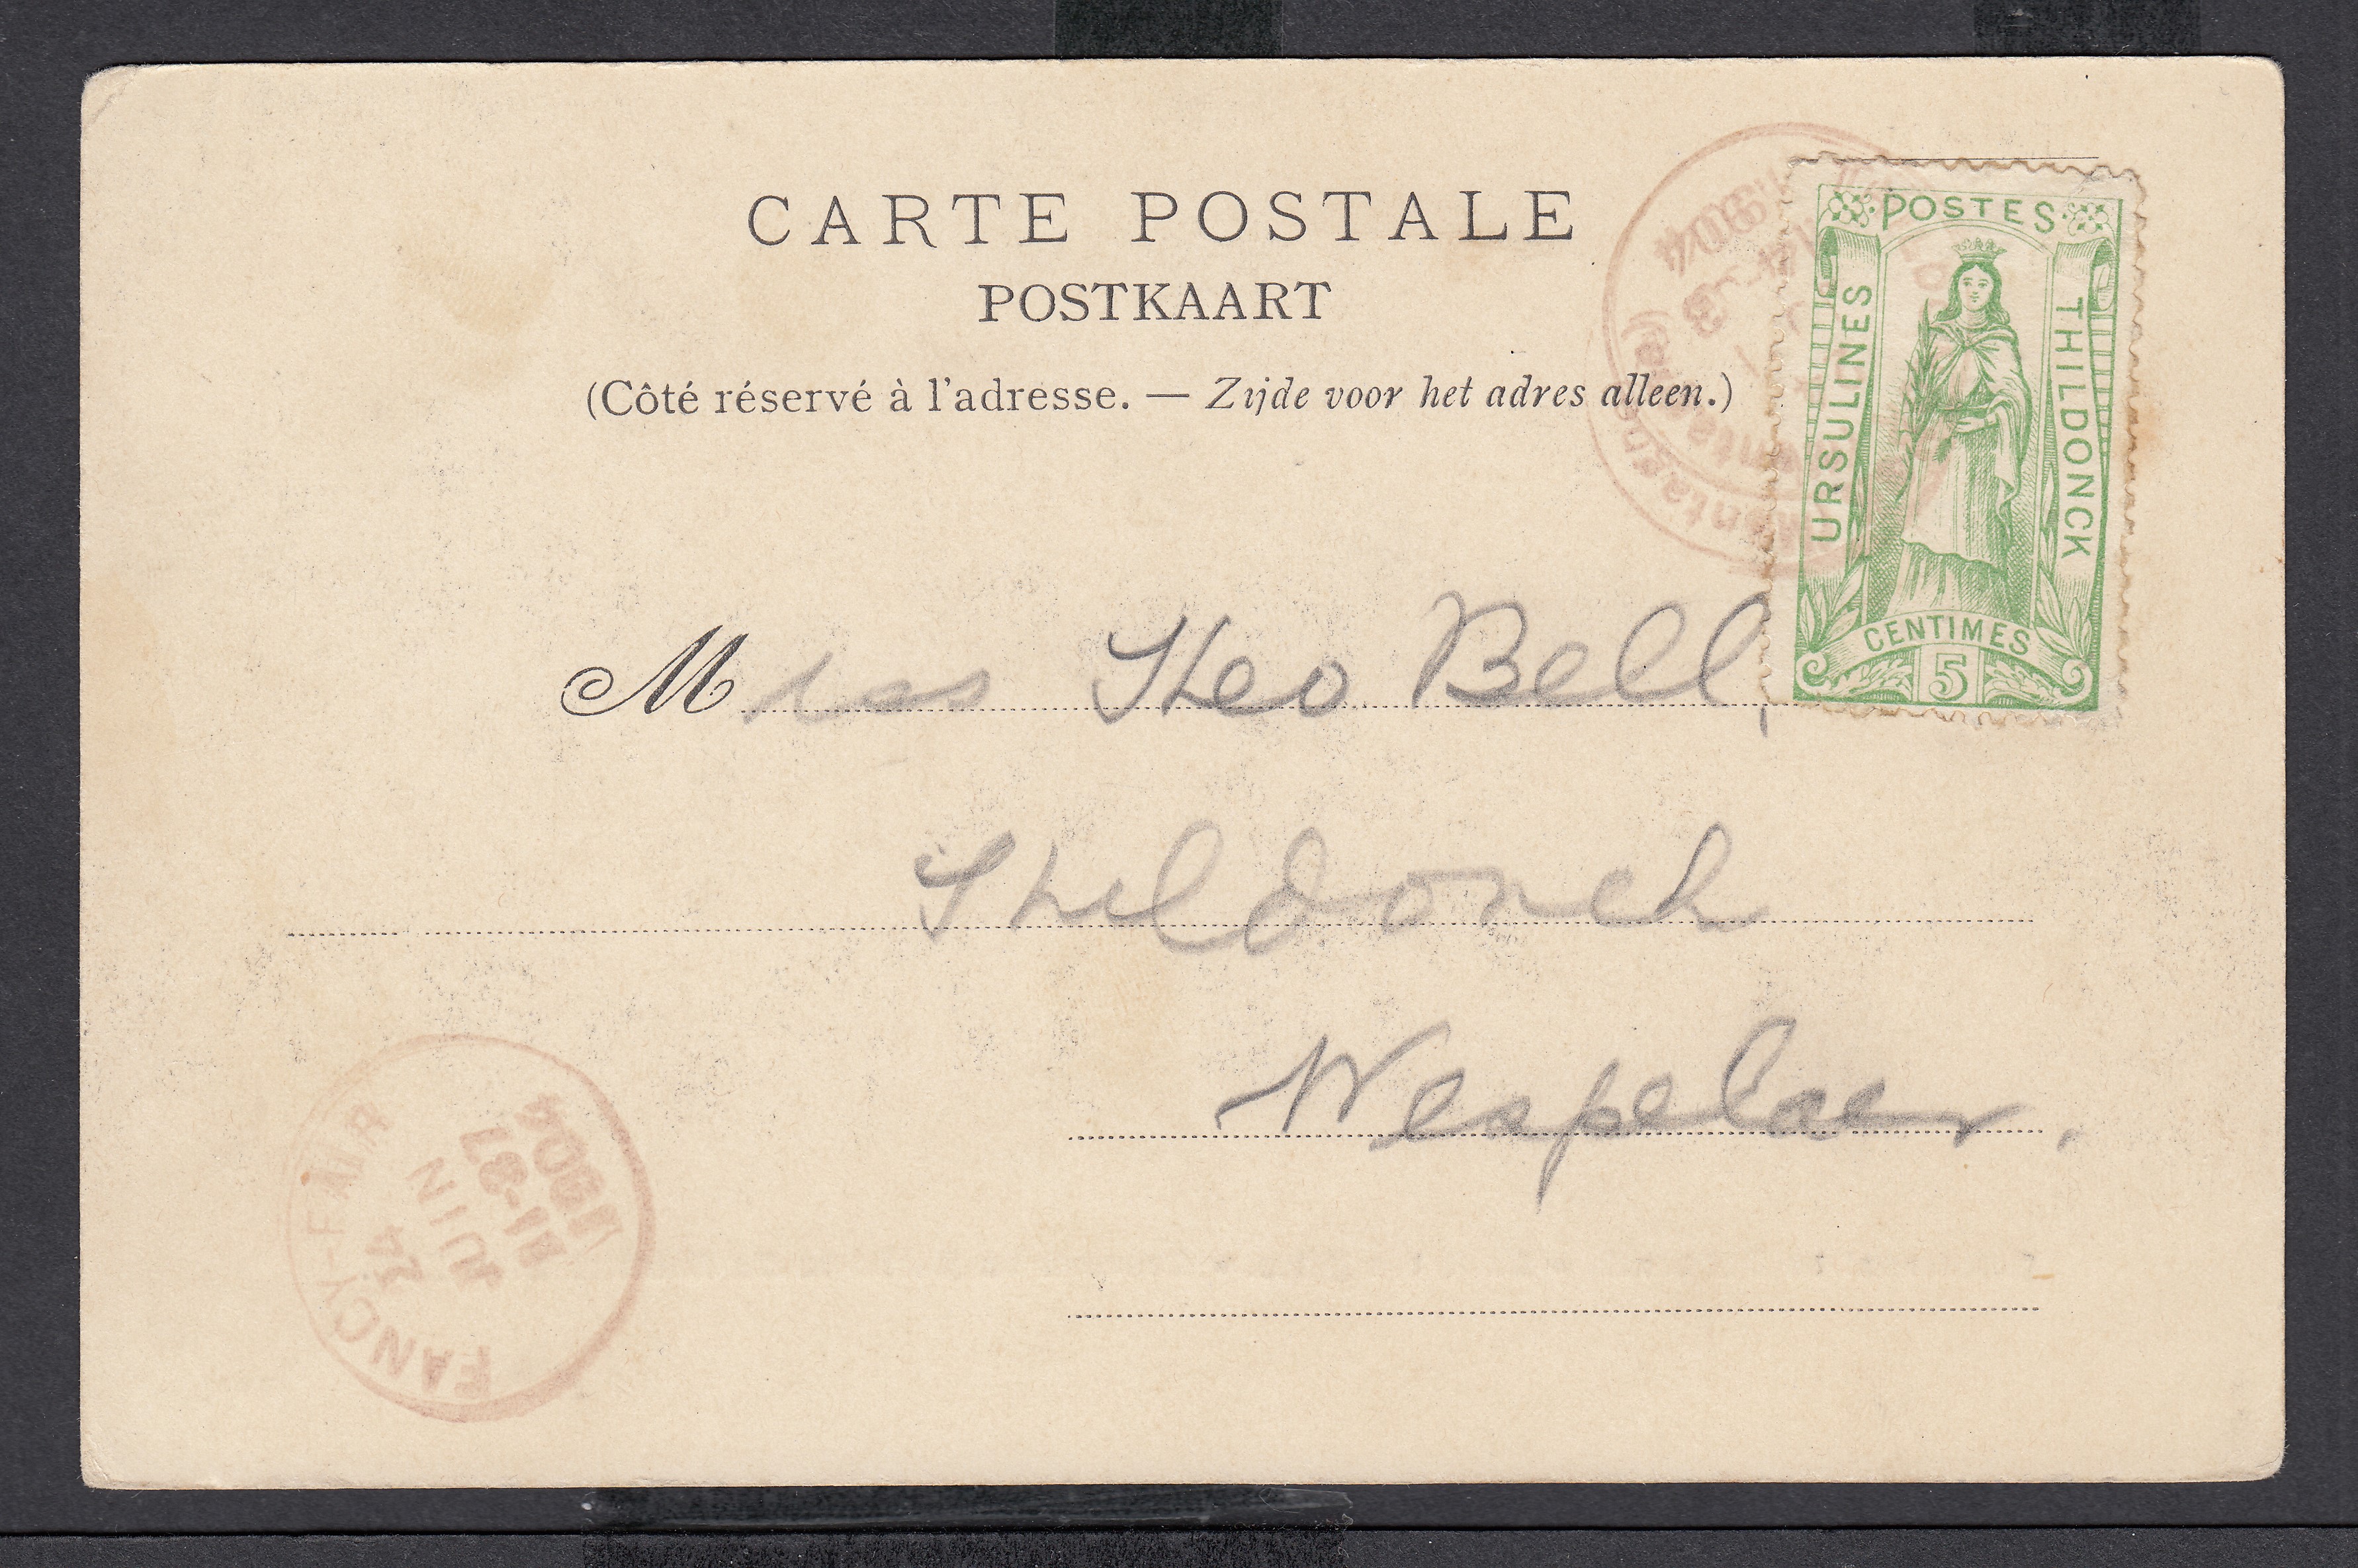 CARTE POSTALE
POSTKAART
(Côté réservé à l'adresse. — Zijde voor het adres alleen.)
POSTES
URSULINES
THILDONCK
CENTIMES
5
1904
Miss Theo Bell,
Thildonck
Wespelaer.
FANCY-FAIR
JUIN
11-87
1904